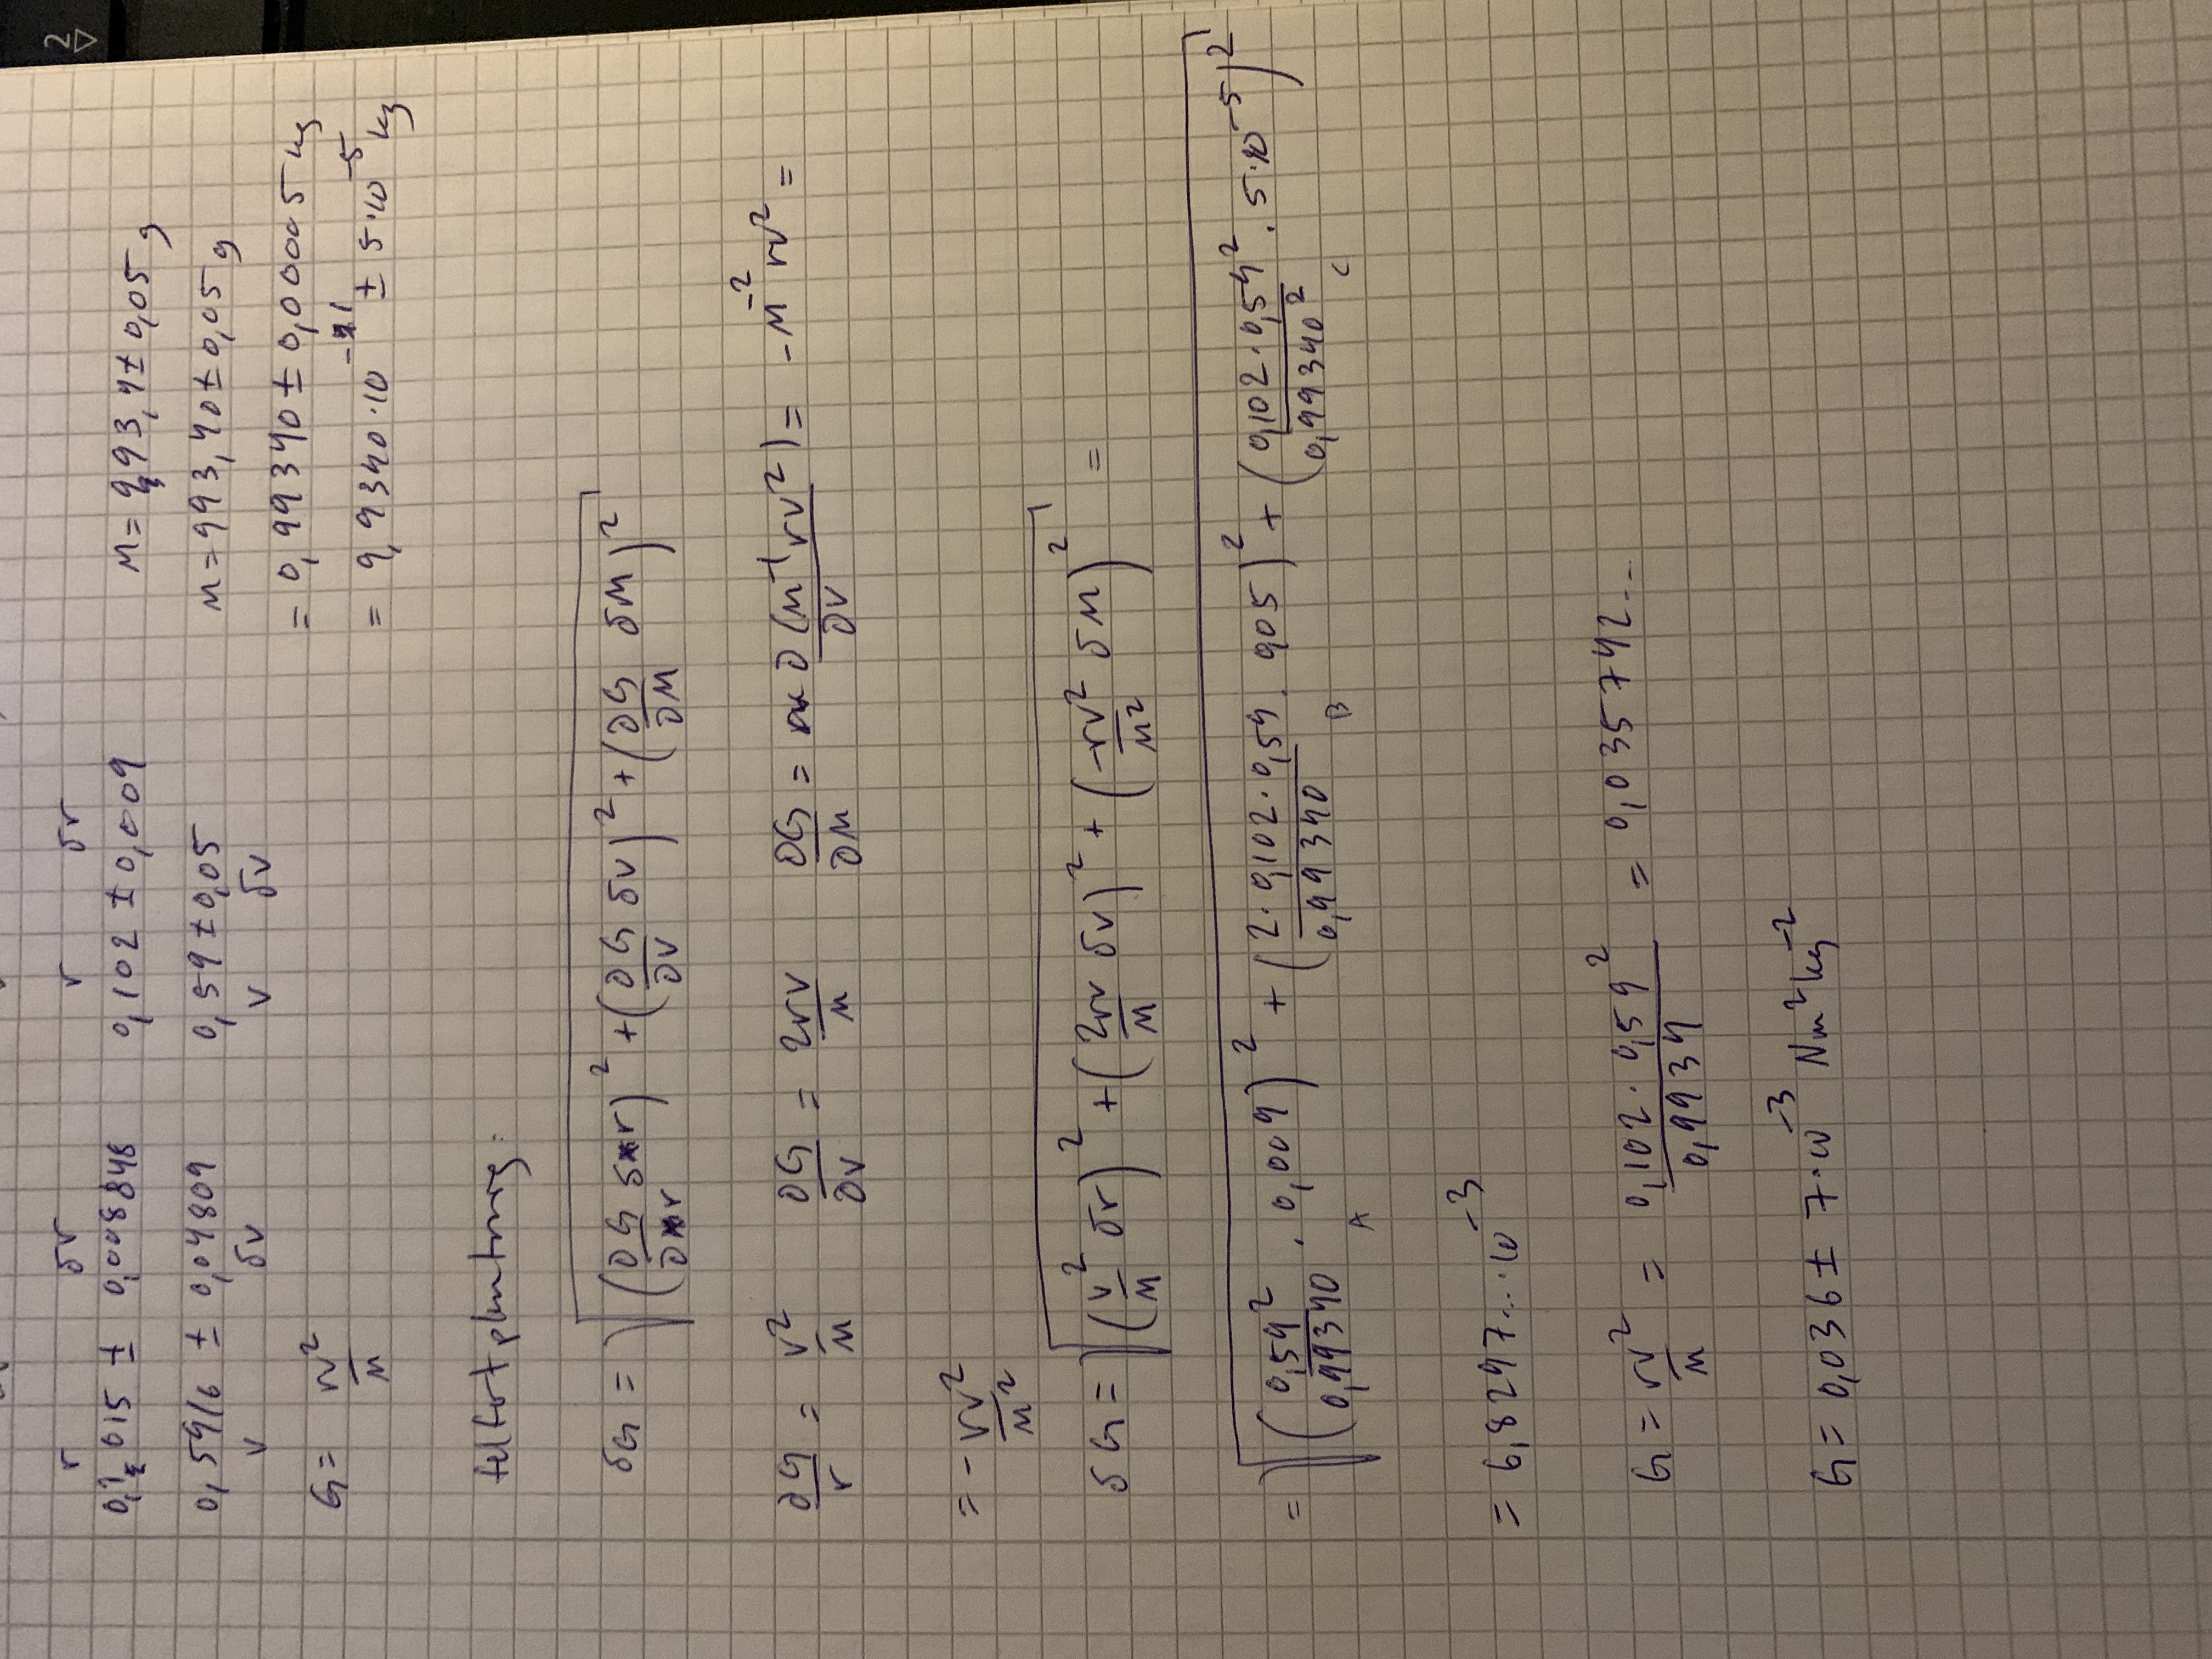 r δr r δr
0,1015 ± 0,008848 0,102 ± 0,009 M = 993,4 ± 0,05 g
0,5916 ± 0,04809 0,59 ± 0,05 M = 993,40 ± 0,05 g
v δv v δv
= 0,99340 ± 0,00005 kg
G = rv²/M
= 9,9340·10⁻¹ ± 5·10⁻⁵ kg
felfortplantning:
δG = √((∂G/∂r δr)² + (∂G/∂v δv)² + (∂G/∂M δM)²)
∂G/r = v²/M ∂G/∂v = 2rv/M ∂G/∂M = ∂(M⁻¹rv²)/∂v = -M⁻²rv² =
= -rv²/M²
δG = √((v²/M δr)² + (2rv/M δv)² + (-rv²/M² δM)²) =
= √((0,59²/0,99340 · 0,009)² + (2·0,102·0,59/0,99340 · 0,05)² + (0,102·0,59²/0,99340² · 5·10⁻⁵)²)
A B C
= 6,8297...·10⁻³
G = rv²/M = 0,102·0,59²/0,9934 = 0,035742...
G = 0,036 ± 7·10⁻³ Nm²kg⁻²